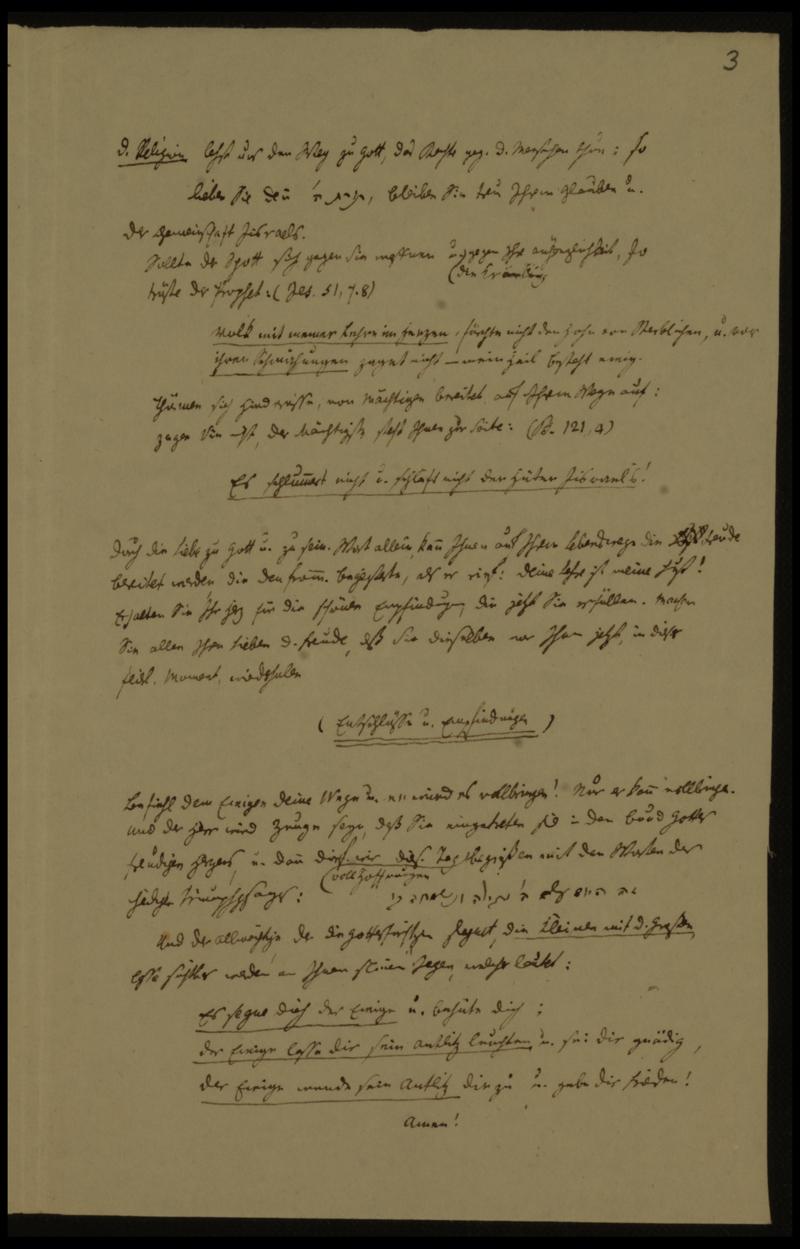 3
d. Religion lehrt uns den Weg zu Gott, das Rechte geg. d. Menschen thun: So
lieben Sie den ה׳, bleiben Sie treu Ihrem Glauben u.
der Gemeinschaft Israels.
Sollte der Spott sich gegen Sie u. gegen Ihre, so
(den Kränkung
tröste der Prophet: (Jes. 51, 7.8)
Volk mit meiner Lehre im Herzen, fürchte nicht den Hohn von Sterblichen, u. vor
ihren Schmähungen zaget nicht – mein Heil besteht ewig.
Thürmen sich Hindernisse, von Mächtigen bereitet auf Ihrem Wege auf:
zagen Sie nicht, der Mächtigste steht Ihnen zur Seite: (Ps. 121, 4)
Es schlummert nicht u. schläft nicht der Hüter Israels!
Durch die Liebe zu Gott u. zu sein. Wort allein, kann Ihnen auf Ihrem Lebenswege die Freude
bereitet werden die den fromm. begeisterte, als er rief: Deine Lehre ist meine Lust!
Erhalten Sie Ihr Herz für die schönen Empfindungen die jetzt Sie erfüllen. Machen
Sie allen Ihren Lieben d. Freude, daß Sie dieselben vor Ihnen jetzt, in dieser
feierl. Moment, wiederholen
(Entschlüsse u. Empfindungen)
Befiehl dem Ewigen deine Wege u. er wird es vollbringen! Nur er kann vollbringen.
Und der Herr wird Zeuge seyn, daß Sie eingetreten sind in den Bund Gottes
freudigen Herzens, u. dann dürfen wir dies. Tag begrüßen mit den Worten der
(voll Hoffnungen
heiligen Triumphgesangs: זה היום עשה ה׳ נגילה ונשמחה בו
Und der Allmächtige der die Gottesfürchtigen segnet, die Kleinen mit d. Großen
lasse sichtbar werden an Ihnen seinen Segen, welcher lautet:
Es segne dich der Ewige u. behüte dich;
der Ewige lasse dir sein Antlitz leuchten u. sei dir gnädig,
der Ewige wende sein Antlitz dir zu u. gebe dir Frieden!
Amen!